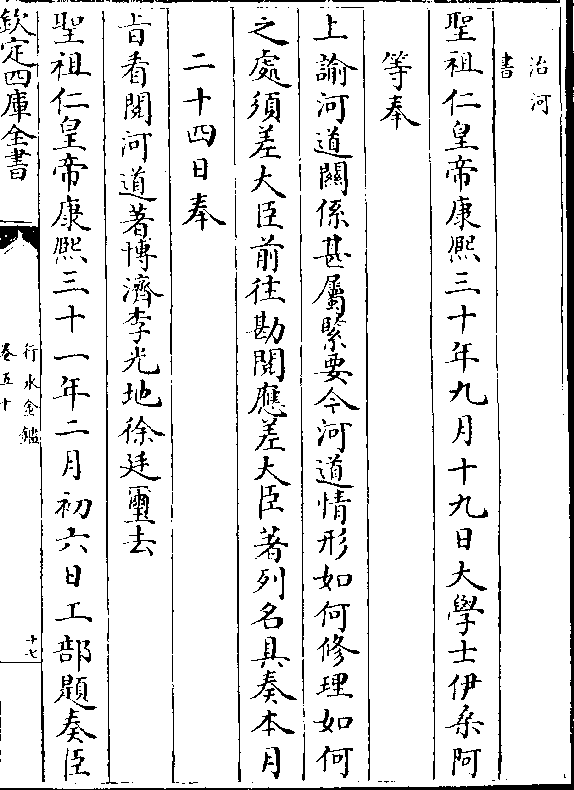 治河
書
聖祖仁皇帝康熙三十年九月十九日大學士伊桑阿
等奉
上諭河道關係甚屬緊要今河道情形如何修理如何
之處須差大臣前往勘閱應差大臣著列名具奏本月
二十四日奉
旨看閱河道著博濟李光地徐廷璽去
聖祖仁皇帝康熙三十一年二月初六日工部題奏臣
欽定四庫全書
行水金鑑
卷五十
十七